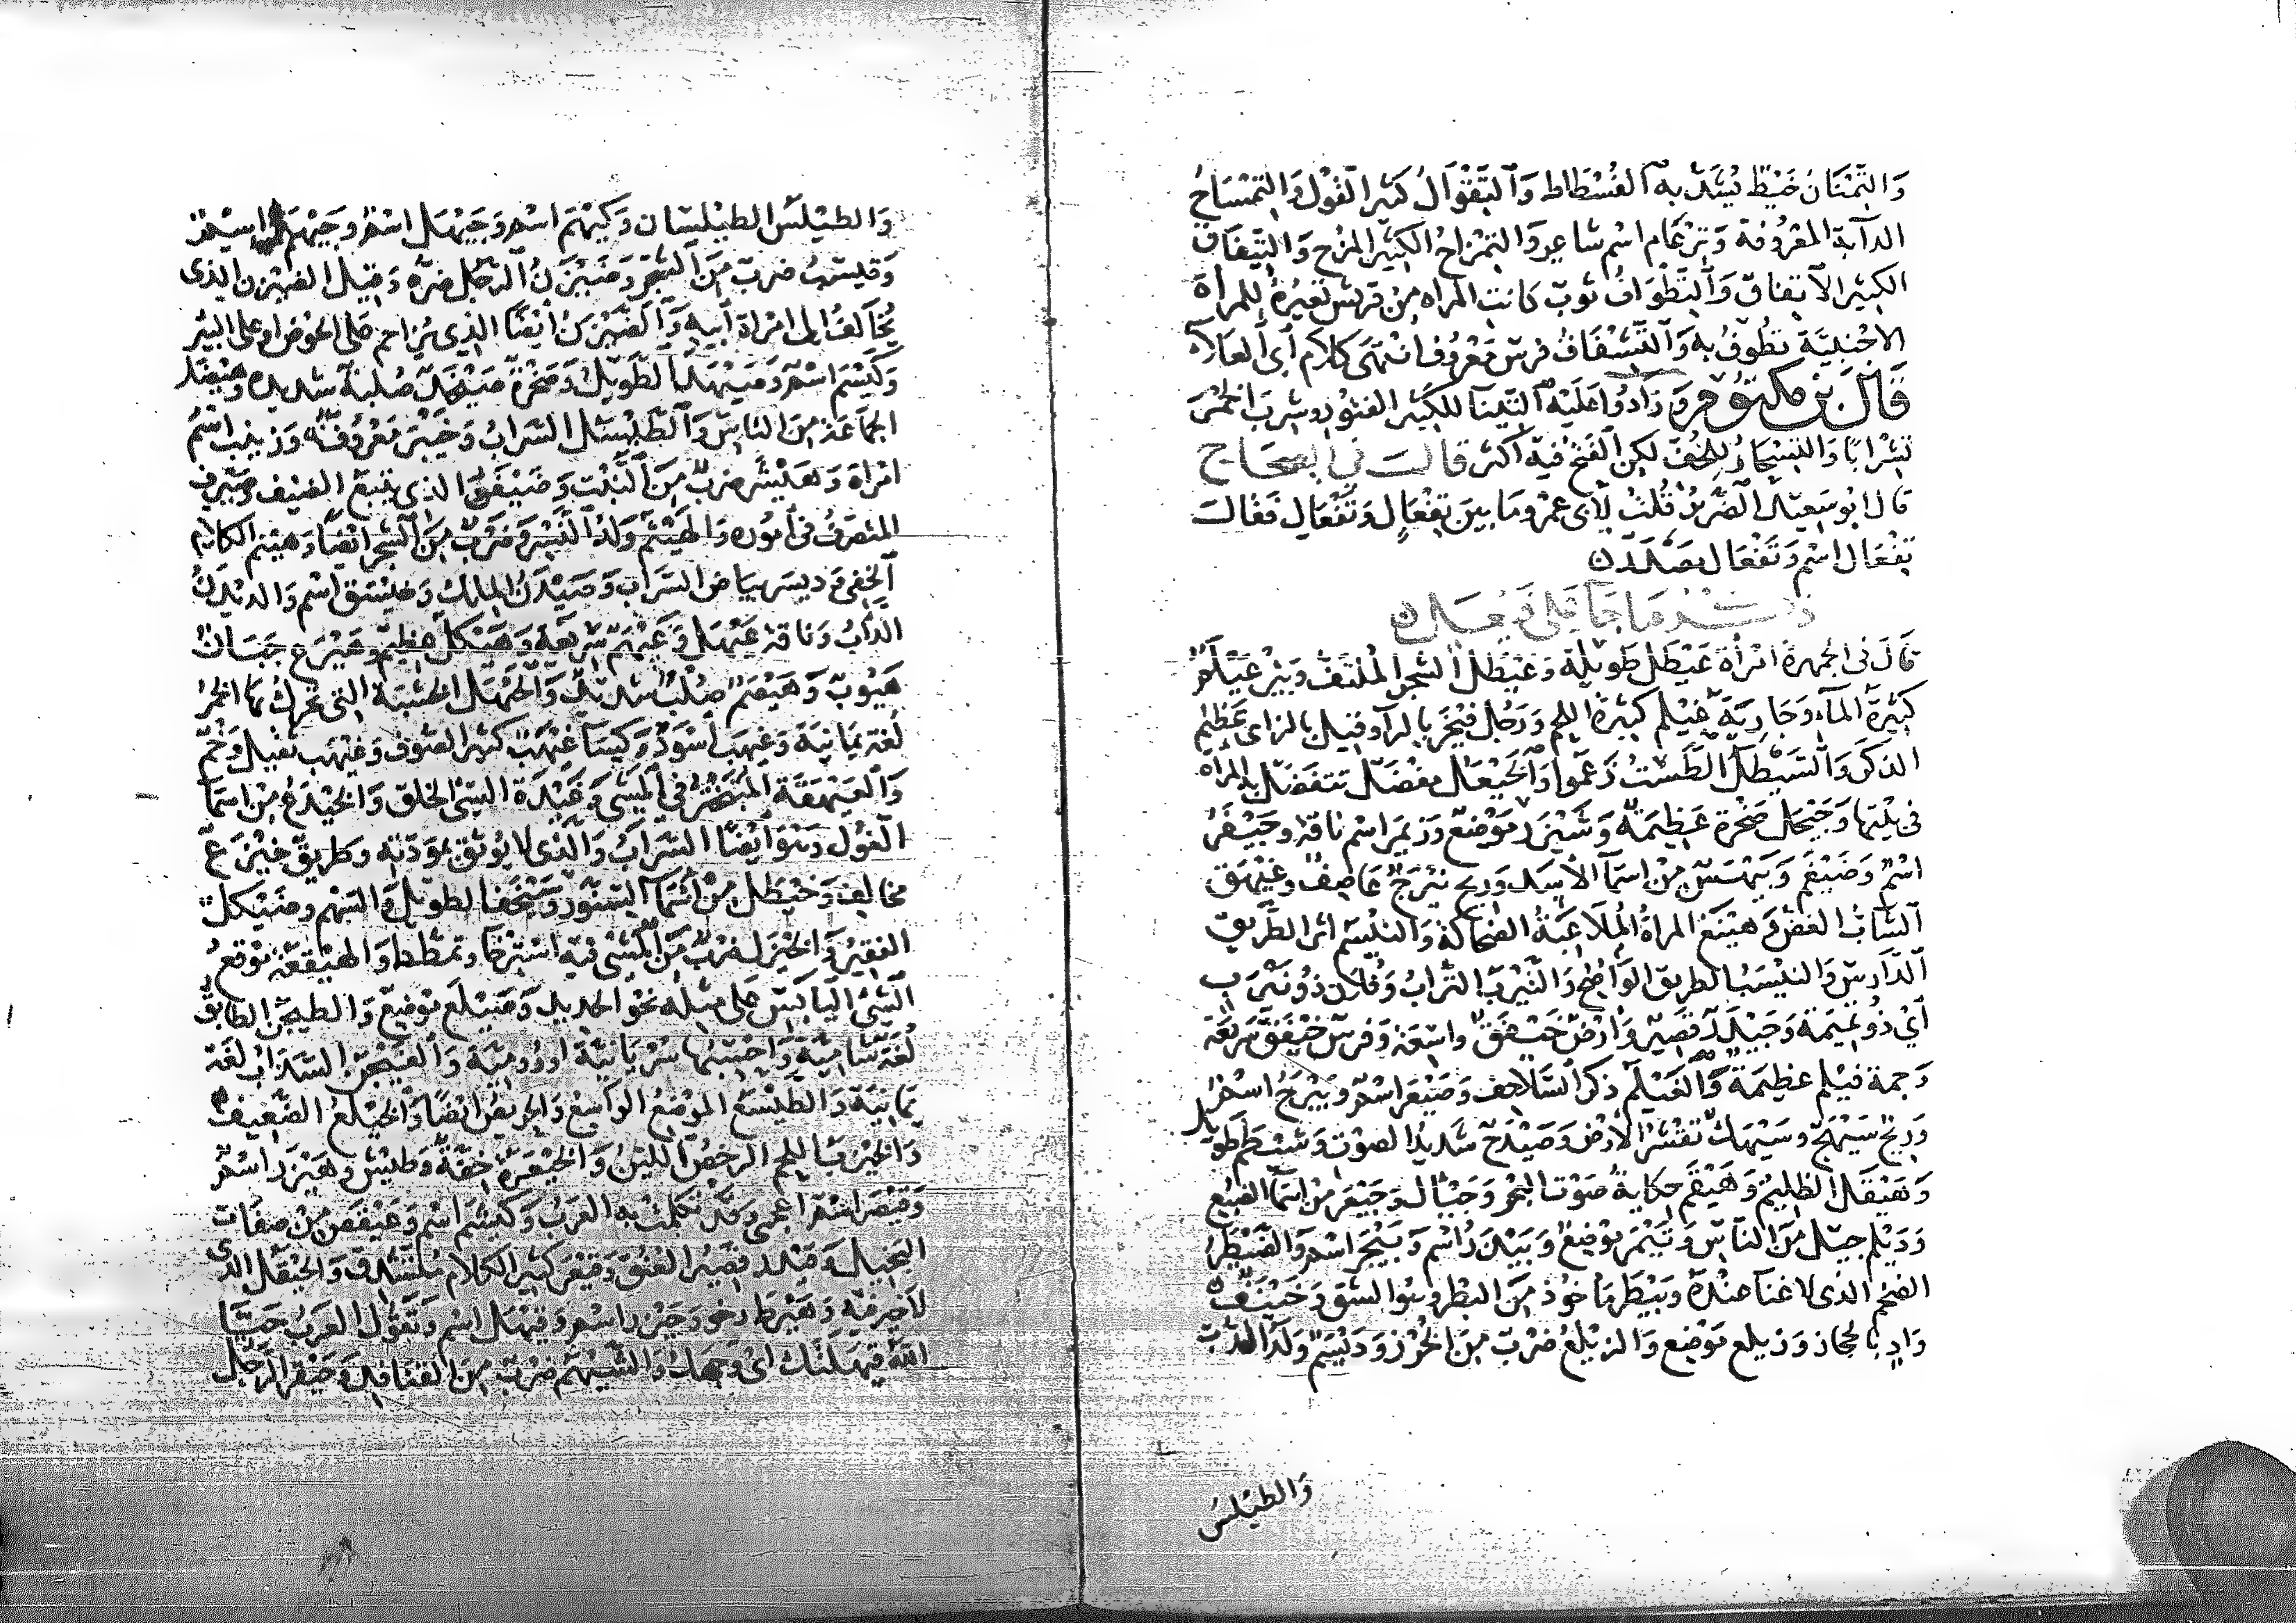 وَالتِّمْتَانُ خَيْطٌ يُشَدُّ به الفُسْطَاط وَالتِّقْوَالُ كَثير القَوْل وَالتِّمْسَاحُ
الدآبة المعْرُوفة وَتِرْعَام اسْم شاعِر وَالتِّمْزَاحُ الكَثِير المزْح وَالتِّيفَاق
الكثِير الاتفاق وَالتِّطْوَافُ ثوبٌ كانت المراه مِنْ قريش تعِيرُهُ للمرأة
الاجْنبِيَّة تطُوفُ به وَالتِّشْفَافُ فرسٌ معْرُوف انْتهَى كلام أبى العَلاء
قَالَ بْن مكتُوم وَ زَادُوا عَلَيْه التِّيتَا للكثِير الفتوُر وشرِبَ الخمْرَ
تِشْرابًا وَالتسْخَانُ للخُفّ لكِن الفَتْح فيه أكثر قالَ في الصحَاح
قال ابُو سَعِيْد الضَّرِيْر قُلتُ لأبى عَمْرو مَا بين تِفْعَال وَتَفْعَال فَقَالَ
تِفْعَال اسْم وَتَفْعَال مصْدَر
ذكر مَا جَآ عَلَى فَيْعَل
قَالَ فى الجمهرة امْرأة عَيْطَل طَويلة وَغيْطل الشجر الملتفّ وَبِئْر عَيْلَم
كَثِيرَة المآء وَجَارِيَة غَيْلم كَثِيرَة اللحم وَرَجُل فَيْخَر بالرآء وقيل بالزاى عَظِيمُ
الذكَر وَالسَّيْطَل الطَّسْت زَعَموا وَالخَيْعَل مفْضَل تتفضّل به المرْأه
فى بيْتها وَجَيْحَل صَخْرة عَظِيمَة وَشَيْزَر مَوْضع وَزيمَر اسْم ناقة وجَيْفَر
اسْم وَضَيْغَم وَبَيْهَسٌ مِنْ اسمآ الأسَد وَريح نَيْرَجٌ عَاصِفٌ وغَيْهَق
الشَّابُ الغض وَهَيْنَغ المراة المُلاعِبَةُ الضحاكة وَالنيْسَم اثر الطريق
الدّارِس وَالنيْسَبُ الطريق الوَاضِح وَالنَّيْرَبُ التُّرابُ وَفُلان ذوُ نَيْرَب
أىْ ذُو نميمَة وَجَيْدَر قَصِيْر وَأرْض خَيْفَقٌ واسِعَة وَفرس خَيْفَق سَرِيعَة
وَجمة فَيْلم عظيمَة وَالغَيْلَم ذكر السَّلاحِف وَضَيْعَر اسْم وَبَيْرَحُ اسْم
وَريحٌ سَيْهَجٌ وسَيْهَك تقشر الأرْض وَصَيْدَح شَديدُ الصوْت وَشَيْظَم طويل
وَهَيْقَل الظليم وَهَيْقَم حكاية صَوْت البَحْر وَجَيْأل وَجَيْعَر مِنْ اسمآ الضبُع
وَدَيْلم جيْل مِنَ الناس وَتَيْمَر موْضع وَبَيْدَر اسْم وَبَيْجَر اسْم وَالضَّيْطَر
الضخْم الذى لا غنآ عنْدهُ وَبَيْطَر مأخوُذ مِن البَطْر وهُو الشق وَخَيْنَفٌ
وَادٍ بالحجاز وَزيلع مَوْضع وَالزيْلعُ ضرْبٌ مِنَ الخرْز وَدَيْسَم وَلَد الدّبّ
وَالطيْلسُ
وَالطَيْلَسُ الطيْلَسان وَكَيْهَم اسْم وَجَيْهَل اسْم وَجَيْهَم اسم
وَقيسَب ضربٌ مِنَ الشجر وَضَيْزَنُ الرَّجُل ضرّه وَقيل الضيْزن الذى
يُخَالفُ الى امْراة أبيه وَالضَّيْزَنُ أيْضًا الذى يُزاحم عَلى الحوْض او على البئر
وَكَيْسَم اسْم وَعَيْهَل الطَّويل وَصَخْرَة صَيْخَد صُلبة شديدة وَهيْضَلة
الجمَاعَة مِنَ الناس وَالطيْسَل السَّرابُ وَخيْبَر مَعْرُوفة وَزينب اسْمُ
امْرأة وَهَيْشَر ضربٌ مِنَ النَّبْت وَضَيْفَن الذى يتبع الضيف وَصَيْرَف
المتصرّف فى أمُوره وَالهَيْثم وَلَدُ النَّسْر وَضَرْبٌ مِنَ الشجر ايْضًا وَهينم الكلام
الخفى وَ ديسَق بيَاض السَّرَاب وَصَيْدَنُ الملك وَخَيْسَق اسْم وَالديْدَنُ
الدَّأبُ وَناقة عَيْهَل وَعَيْهَم سَرِيعَة وَهَيْكل عظيم وَهَيْرَع جبَان
هَيُوبٌ وَهَيْقَم صُلْبٌ شديد وَالجَيْهَل الخشبَة التى تحرك بها الجمرُ
لُغة يَمانيَة وَغيهب أسْوَد وَكِسَآء غَيْهَب كثير الصّوف وَغيْهب ثقيل وَخْم
وَالعَيْهَقَة التبختر فى المشى وَغَيْدَة السّئ الخلق وَالخيْدَع مِنْ اسْمَآ
الغوْل وَهْوَ أيْضًا السَّرابُ وَالذى لا يُوثق بمودّتِه وَطَرِيق خَيْدَع
مخالِف وَخَيْطل مِنْ أسْمآ السِّنَّوْر وَسَيْحَف الطويل وَالسَّهْم وَضَيْكل
الفقير وَالخَيْزَل ضربٌ مِن المشْى فيه اسْترخا وَتمطط وَالهيْقعة موقعُ
الشئ اليابس عَلى مِثله نحو الحديد وَضَيْلَع موْضع وَالطيجن الطابَق
لُغة شاميّة وَاحسِبُها سُرْيَانيَّة اورُومِيَّة وَالفيْجَن السَّذاب لغة
يمانيَة وَالطيْسَع الموْضع الوَاسِع وَالحريصُ ايْضًا وَالخَيْلع الضَّعِيف
وَالخَيْزب اللحم الرخص اللين وَالخَيْعَرَة خِفَّة وَطيْش وَهَيْزَر اسْم
وَقَيْصَر اسْم اعجمى وَقد تكلمتْ به العَرَبُ وَكَيْشَم اسْم وَعَيْفَص مِنْ صفات
البَخِيل وَصَيْدَد قصِيْر العُنق وَقَيْعَر كثير الكلام مُتشدق وَالخَيْقَل الذى
لاخير فيه وَهَيْرَط رخو وَجَيْزر اسْم وَقَيْهَل اسْم وَتقولُ العَرَبُ حَيَّا
اللهُ قيْهَلَتَك اى وَجهك وَالشَّيْهَم ضرْب مِنَ القنافذ وَضَيْقر الرَّجُل